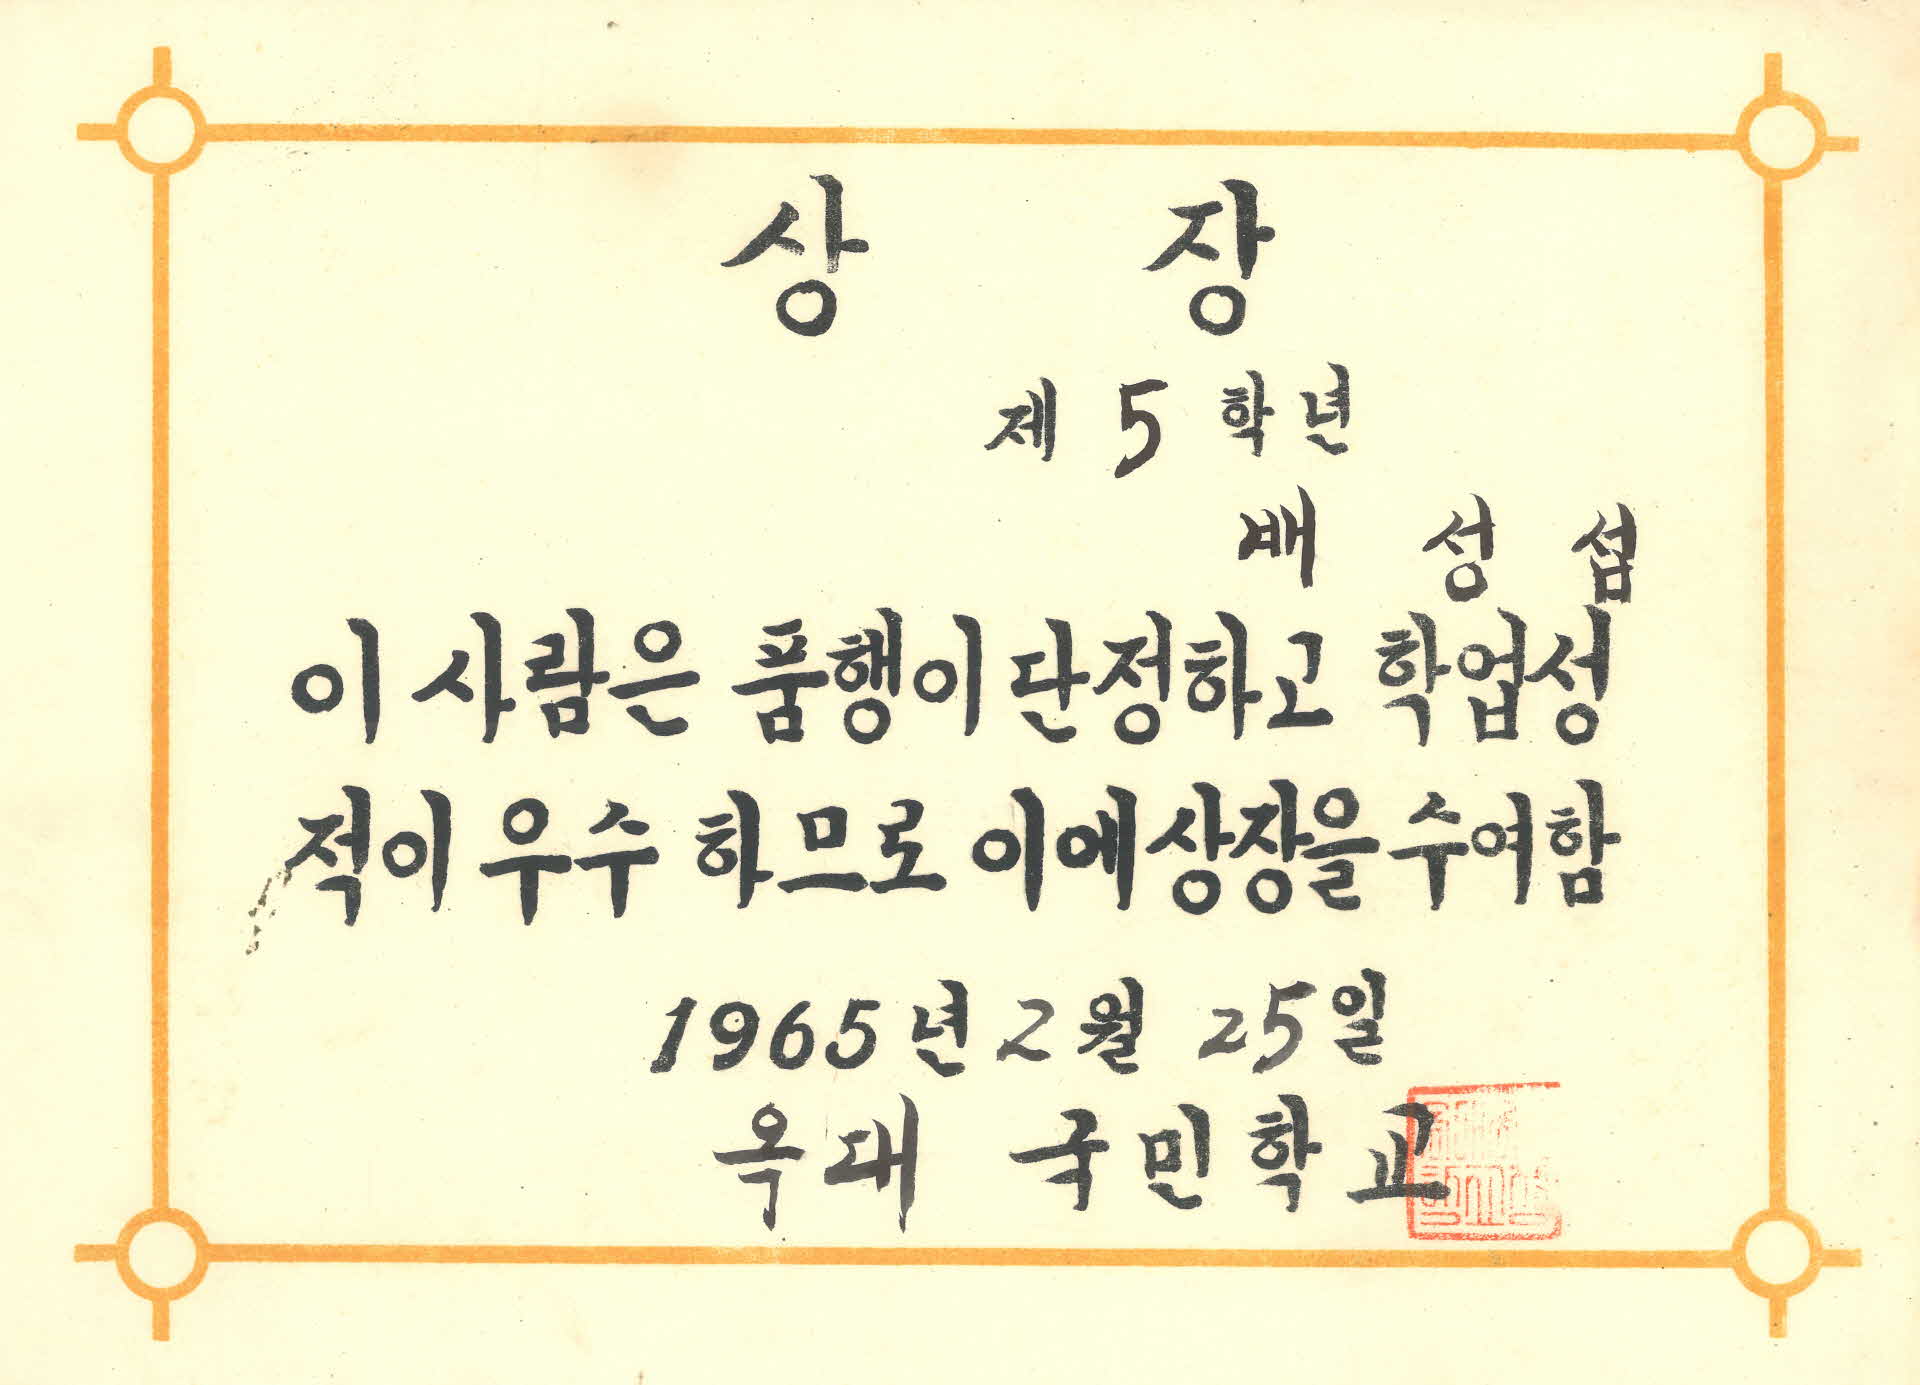 상 장
제 5 학년
배 성 섭
이 사람은 품행이 단정하고 학업성
적이 우수 하므로 이에 상장을 수여함
1965년 2월 25일
옥대 국민학교